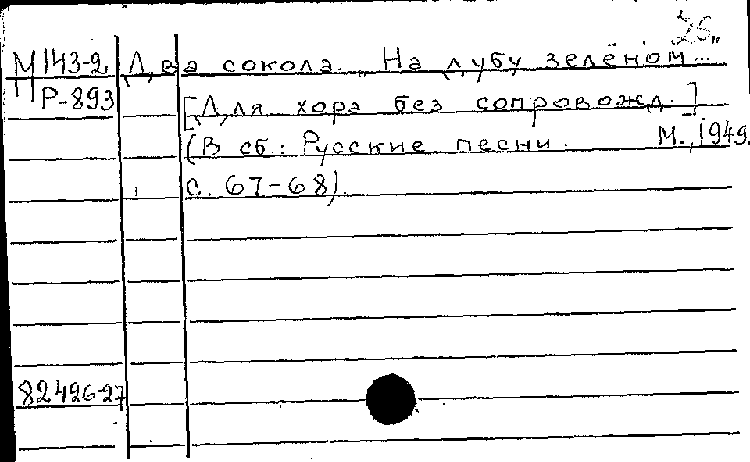 25
М143-2 Два сокола. На дубу зелёном...
Р-893 [Для хора без сопровожд.]
(В сб.: Русские песни. М., 1949.
с. 67-68).
82426-27